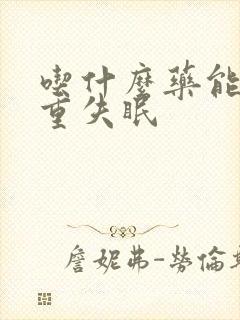 喫什麼藥能
重失眠
詹妮弗-勞倫